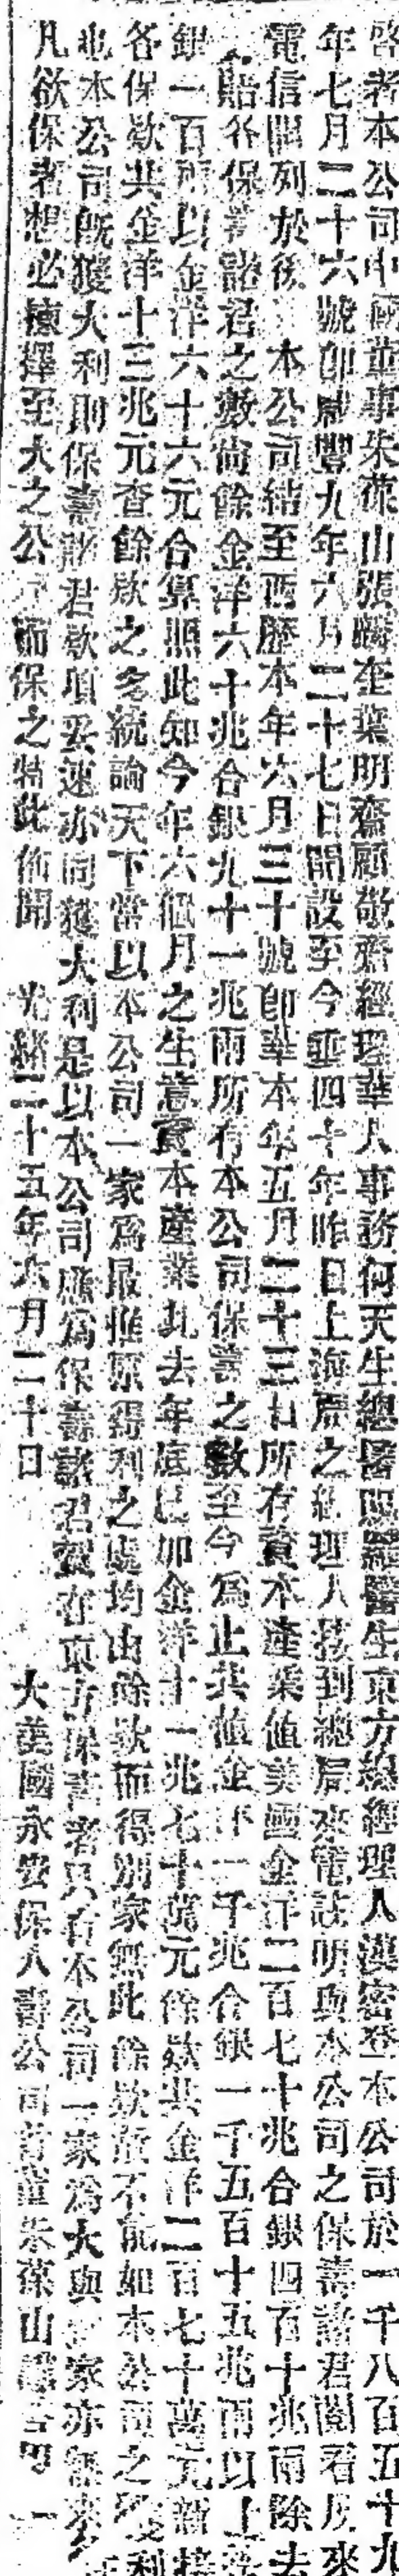 啓者本公司中國董事朱葆山張麟奎葉明齋顧敬齋經理華人事務何天生總醫照羅醫生東方總經理人漢密登本公司於一千八百五十九
年七月二十六號卽咸豐九年六月二十七日開設至今垂四十年昨日上海局之經理人接到總局來電註明與本公司之保壽諸君閱看及來
電信開列於後 本公司結至西歷本年六月三十號卽華本年五月二十三日所有資本產業値美國金洋二百七十兆合銀四百十兆兩除去
賠各保壽諸君之數尙餘金洋六十兆合銀九十一兆兩所有本公司保壽之數至今爲止共値金洋一千兆合銀一千五百十五兆兩以上
銀一百兩以金洋六十六元合算照此知今年六個月之生意資本產業比去年底已加金洋十一兆七十萬元餘欵共金洋二百七十萬元新接
各保欵共金洋十三兆元查餘欵之多統論天下當以本公司一家爲最惟原得利之處均由餘欵而得別家無此餘欵故不能如本公司之獲利
也本公司旣獲大利則保壽諸君欵項妥速亦同獲大利是以本公司應爲保壽諸君賀在東方保壽者只有本公司一家爲大與家亦無
凡欲保者想必揀擇至大之公司而保之特此佈聞 光緒二十五年六月二十日 大美國永安保人壽公司首董朱葆山